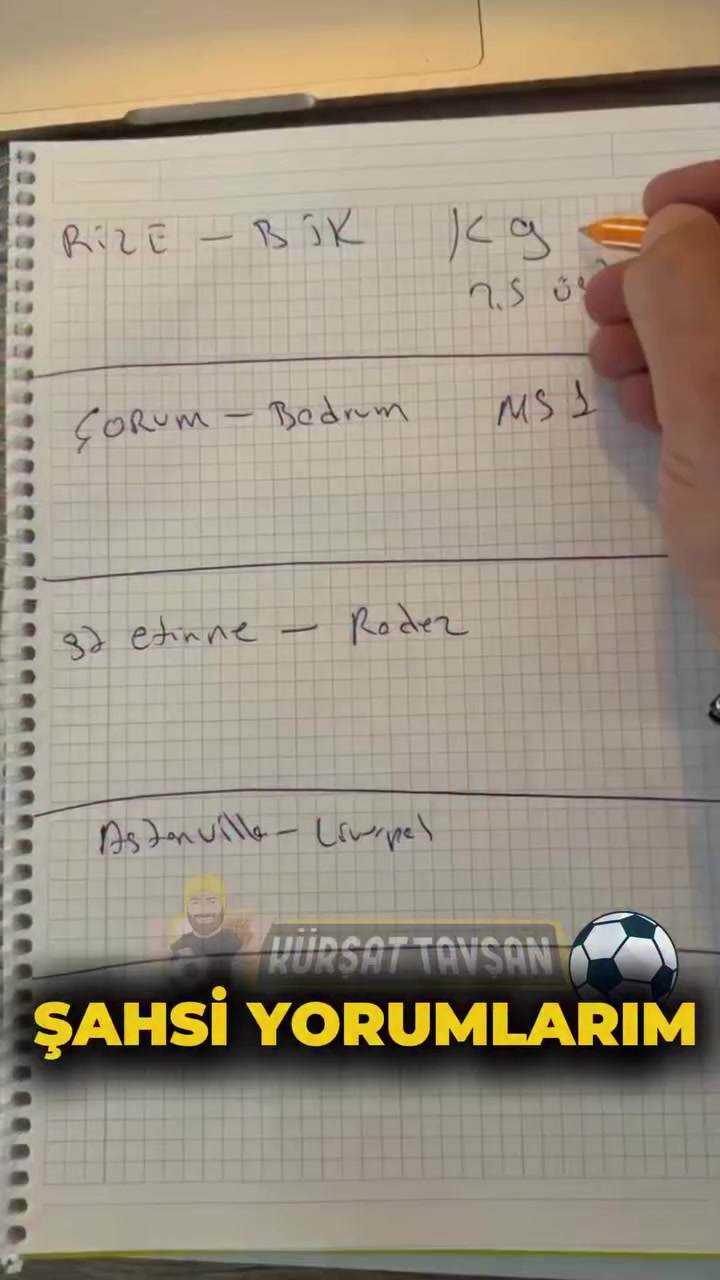 RiZE - BJK KG
2.5 üs
ÇORUM - Bodrum MS 1
st etinne - Rodez
Astonvilla - Liverpol
KÜRŞAT TAVŞAN
ŞAHSİ YORUMLARIM